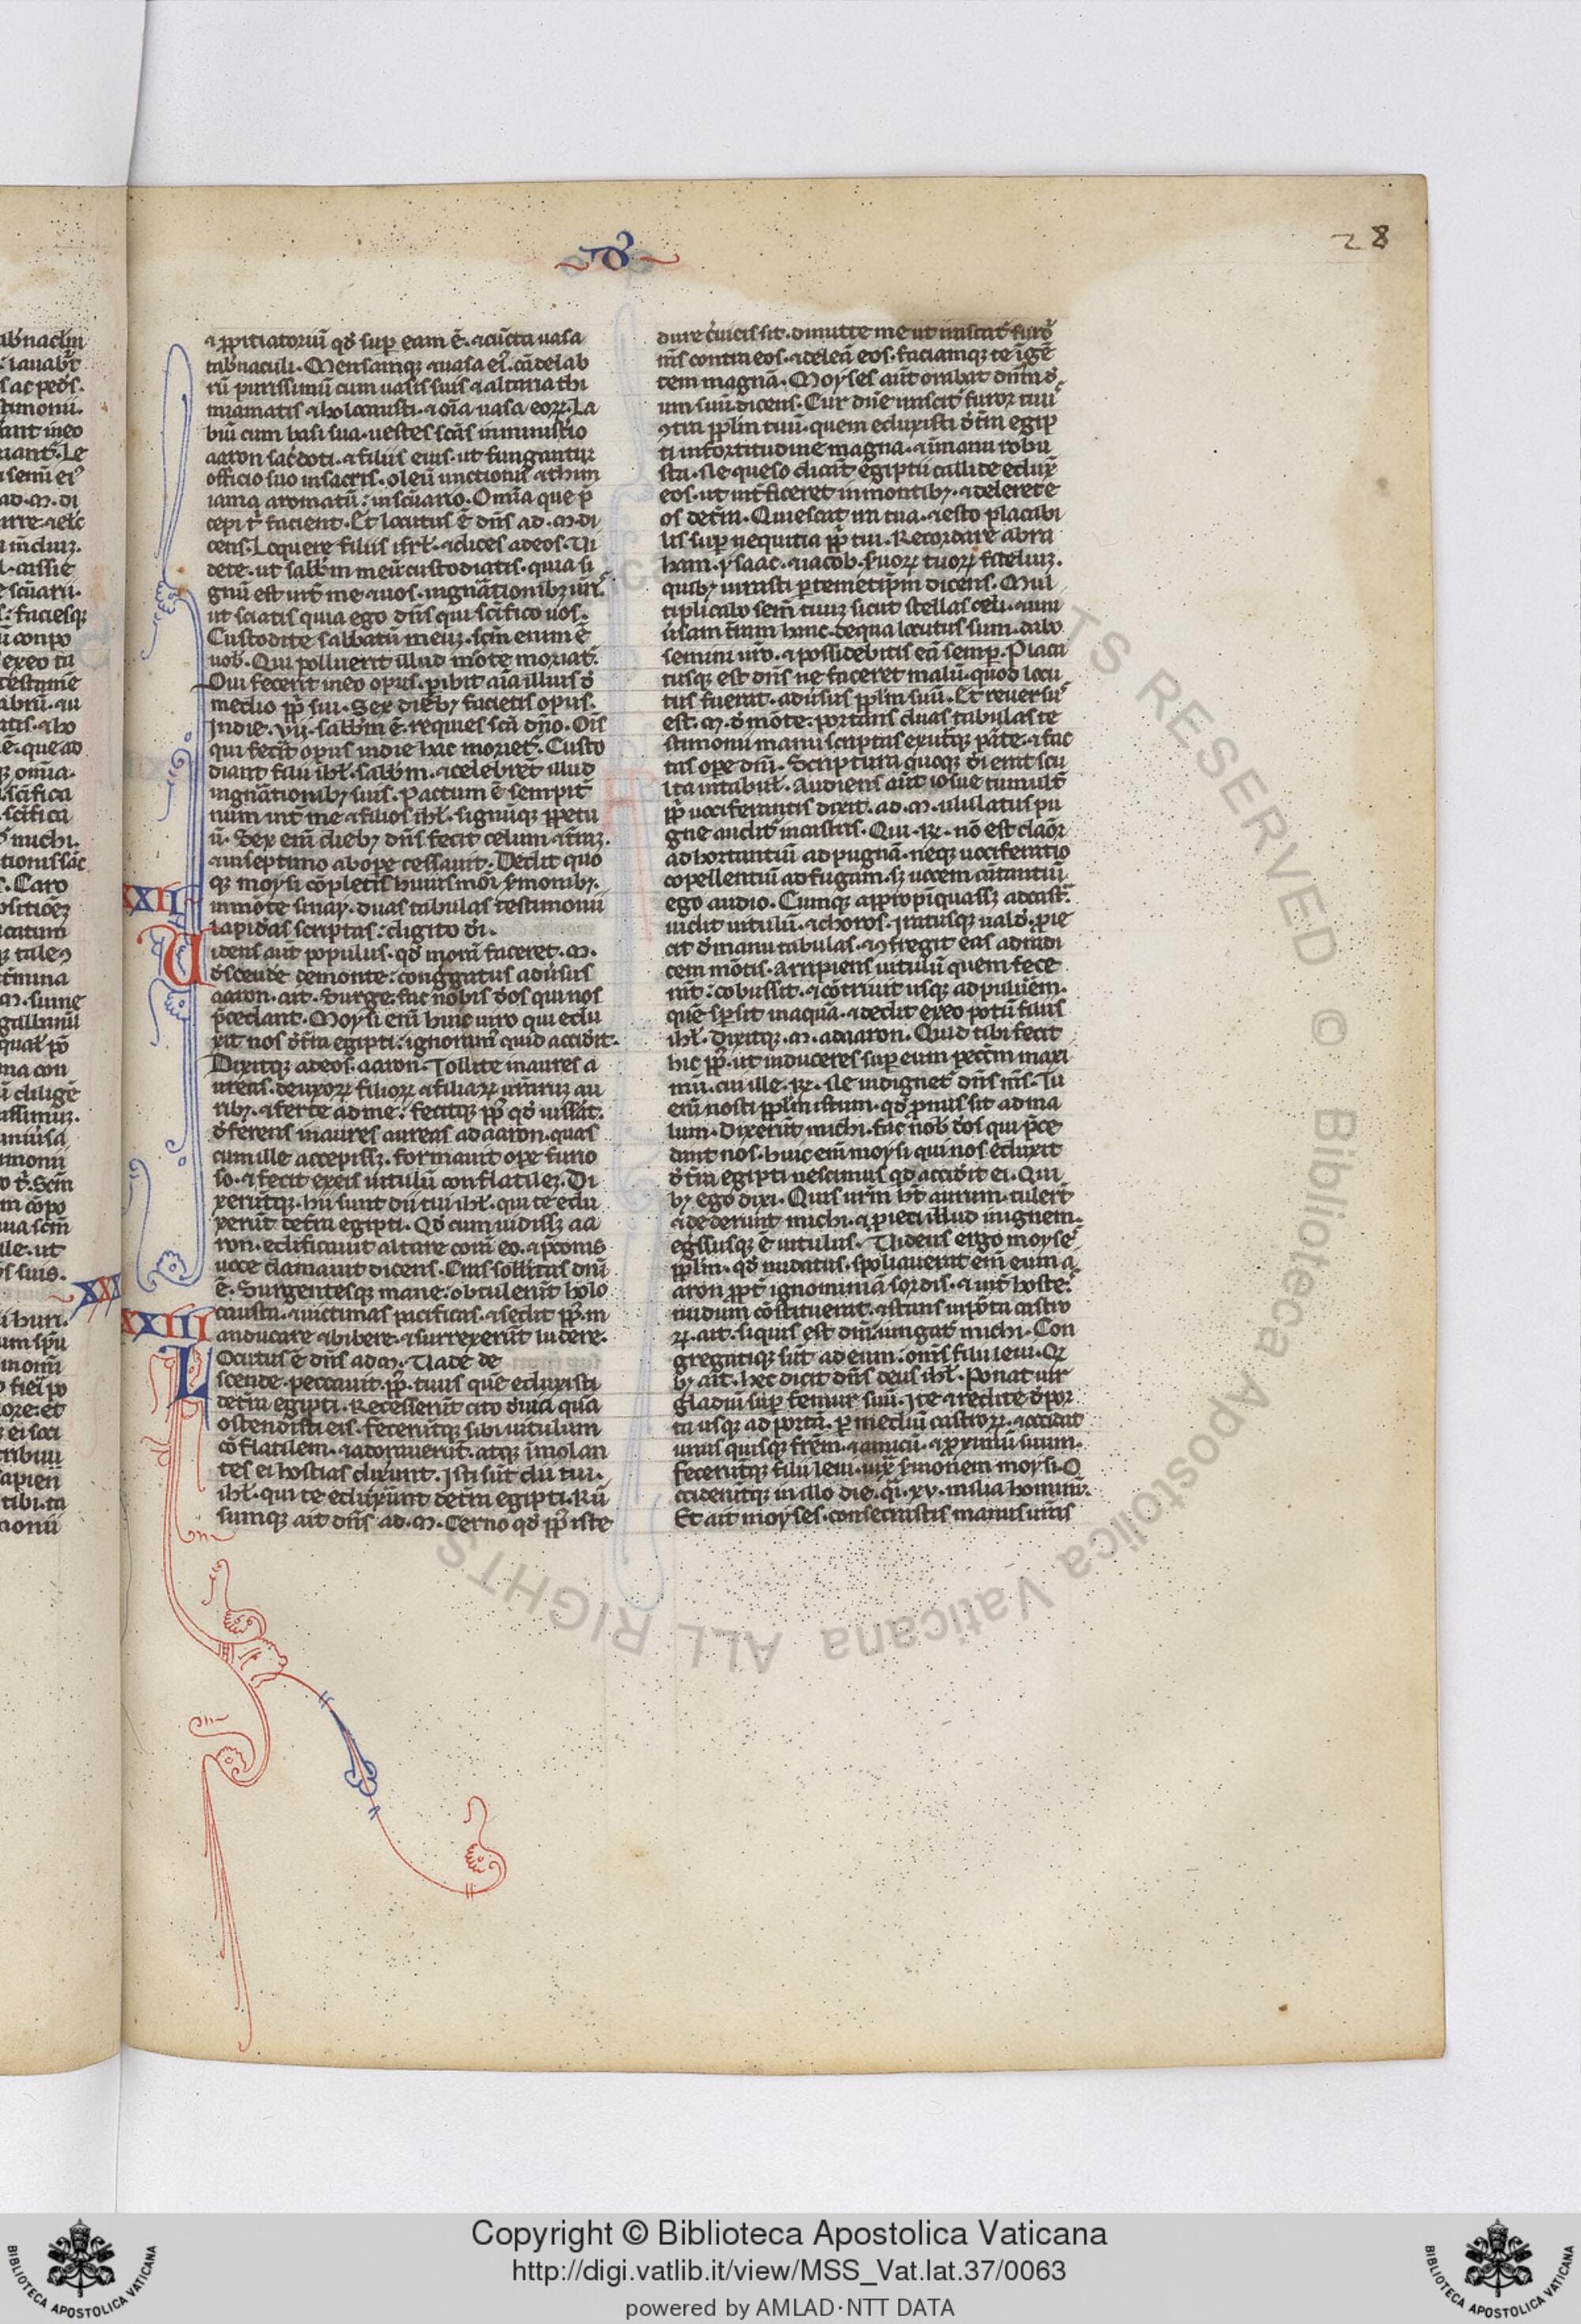 28
⁊ ꝓpitiatoriũ qđ suꝑ eam ẽ. ⁊ cũcta uasa
tab̾naculi. Mensamqꝫ ⁊ uasa ei᷒. cãdelab
rũ purissimũ cum uasis suis ⁊ altaria thi
miamatis ⁊ holocausti. ⁊ oĩa uasa eoꝝ. La
biũ cum basi sua. uestes sc̃as in ministio
aaron sac̾doti. ⁊ filiis eius. ut fungantur
officio suo in sacris. oleũ unctionis ⁊ thim
iama aromatũ: in sc̃uario. Omĩa que p̃
cepi t̾ facient. Et locutus ẽ dñs ad .M. di
cens. Loquere filiis isrł. ⁊ dices ad eos. Ui
dete. ut sabb̃m meũ custodiatis. quia si
gnũ est int̾ me ⁊ uos. in gñationibꝫ ur̃is.
ut sciatis quia ego dñs qui sc̃ifico uos.
Custodite sabbatũ meuꝫ. sc̃m enim ẽ
uob̾. Qui polluerit illud morte moriat̾.
Qui fecerit in eo opus. ꝑibit aĩa illius đ
medio pp̃ sui. Sex diebꝫ facietis opus.
In die .vij. sabb̃m ẽ. requies sc̃a dño. Oĩs
qui fec̾it opus in die hac moriet̾. Custo
diant filii ihł. sabb̃m. ⁊ celebrẽt illud
in gñationibꝫ suis. Pactum ẽ sempit̾
num int̾ me ⁊ filios ihł. signũqꝫ ꝑpetu
ũ. Sex em̃ diebꝫ dñs fecit celum ⁊ t̾raꝫ.
⁊ in septimo ab oꝑe cessauit. Dedit quo
qꝫ moysi cõpletis huiuscemõi s̾monibꝫ.
XXII
in mõte sinay. duas tabulas testimonii
lapideas scriptas: digito đi.
Uidens aut̃ populus. qđ morã faceret .M.
đscende de monte: congg̾atus adu̾sus
aaron. ait. Surge. fac nobis đos qui nos
p̃cedant. Moysi em̃ huic uiro qui edu
xit nos đ t̾ra egipti: ignoramꝰ quid accid̾it.
Dixitqꝫ ad eos aaron. Tollite inaures a
ureas. de uxoꝝ filioꝝ ⁊ filiaꝝ ur̃aruꝫ au
ribꝫ. ⁊ ferte ad me: fecitqꝫ pp̃ qđ iussat̾.
đferens inaures aureas ad aaron. quas
cum ille accepissꝫ. formauit oꝑe fuso
so. ⁊ fecit ex eis uitulũ conflatileꝫ. Di
xerũtqꝫ. hii sunt dii tui ihł. qui te edu
xerũt de t̾ra egipti. Qđ cum uidissꝫ aa
ron. edificauit altare corã eo. ⁊ p̃conis
uoce clamauit dicens. Cras sollẽnitas dñi
ẽ. Surgentesqꝫ mane: obtulerũt holo
XXIII
causta. ⁊ uictimas pacificas. ⁊ sedit pp̃. m
anducare ⁊ bibere. ⁊ surrexerũt ludere.
Locutus ẽ dñs ad .M. Uade de
scende. peccauit. pp̃. tuus quẽ eduxisti
de t̾ra egipti. Recesserũt cito đ uia quã
ostendisti eis. fecerũtqꝫ sibi uitulum
cõflatilem. ⁊ adorauerũt. atqꝫ ĩmolan
tes ei hostias dixerũt. Isti sũt dii tui.
ihł. qui te eduxerunt de t̾ra egipti. Rũ
sumqꝫ ait dñs ad .M. Cerno qđ pp̃ iste
dure c̾uicis sit. dimitte me ut irascat̾ furoꝛ
m̃s contra eos. ⁊ deleã eos. faciamqꝫ te ĩ gẽ
tem magnã. Moyses aut̃ orabat dñm đ
um suũ dicens. Cur dñe irascit̾ furor tuꝰ
ꝯtra pp̃lm tuũ. quem eduxisti đ t̾ra egip
ti in fortitudine magna. ⁊ ĩ manu robu
sta. Ne queso dicãt egiptii callide edux̾
eos. ut int̾ficeret in montibꝫ. ⁊ deleret e
os de t̾ra. Quiescat ira tua. ⁊ esto placabi
lis suꝑ nequitia pp̃ tui. Recordare abra
ham. ysaac. ⁊ iacob. s̾uoꝝ tuoꝝ fideliuꝫ.
quibꝫ iurasti ꝑ temetip̃m dicens. Mul
tiplicabo sem̃ tuuꝫ sicut stellas celi. ⁊ uni
ũsam t̾ram hanc. de qua locutus sum. dabo
semini ur̃o. ⁊ possidebitis eã semꝑ. Placa
tusqꝫ est dñs ne faceret malũ. quod locu
tus fuerat. adu̾sus pp̃lm suũ. Et reuersuꝰ
est .M. đ mõte: portans duas tabulas te
stimonii manu scriptas ex utaqꝫ ꝑte. ⁊ fac
tas oꝑe dñi. Scriptura quoqꝫ đi erat scu
lta in tabuł. Audiens aut̃ iosue tumult̃
pp̃ uociferantis dixit. ad .M. ululatus pu
gne audit̾ in castris. Qui .R̃. nõ est clamoꝛ
ad hortantiũ ad pugnã. neqꝫ uociferatio
cõpellentiũ ad fugam. sꝫ uocem cãtantiũ
ego audio. Cumqꝫ appropĩquassꝫ ad cast̾.
uidit uitulũ. ⁊ choros. Iratusqꝫ ualđ. ꝓie
cit đ manu tabulas. ⁊ ꝯfregit eas ad radi
cem mõtis. Arripiens uitulũ quem fece
rãt: cõbussit. ⁊ cõtriuit usqꝫ ad puluẽem.
quẽ sparsit in aquã. ⁊ dedit ex eo potũ filiis
ihł. Dixitqꝫ .M. ad aaron. Quid tibi fecit
hic pp̃. ut induceres suꝑ eum pecc̃m maxi
mũ. cui ille .R̃. Ne indignet̾ dñs m̃s. Tu
em̃ nosti pp̃lm istum. qđ ꝓnus sit ad ma
lum. Dixerũt michi. fac nob̾ đos qui p̃ce
dant nos. huic em̃ moysi qui nos eduxit
đ t̾ra egipti nescimus qđ accid̾it ei. Qui
bꝫ ego dixi. Quis ur̃m hȝt aurum. tulerũt
⁊ dederunt michi. ⁊ ꝓieci illud in ignem.
eg̾ssusqꝫ ẽ uitulus. Uidens ergo moyseꝰ
pp̃lm. qđ nudatus. spoliauerat em̃ eum a
aron ꝓpt̾ ignominiã sordis. ⁊ int̾ hosteꝰ
nudum cõstituerat. ⁊ stans in porta castro
ꝝ. ait. si quis est dñi iungat̾ michi. Con
gregatiqꝫ sũt ad eum: om̃s filii leui. Q̾
bꝫ ait. hec dicit dñs deus ihł. Ponat uir
gladiũ suꝑ femur suũ. Ite ⁊ redite đ por
ta usqꝫ ad portã. ꝑ mediũ castroꝝ. ⁊ occidat
unus quisqꝫ fr̃em. ⁊ amicũ. ⁊ ꝓximũ suum.
fecerũtqꝫ filii leui. iux̾ s̾monem moysi. O
cciderũtqꝫ in illo die. q̃i. xx. milia hominũ.
Et ait moyses. consecrastis manus ur̃as
Copyright © Biblioteca Apostolica Vaticana
http://digi.vatlib.it/view/MSS_Vat.lat.37/0063
powered by AMLAD·NTT DATA
BIBLIOTECA APOSTOLICA VATICANA
BIBLIOTECA APOSTOLICA VATICANA
ALL RIGHTS RESERVED © Biblioteca Apostolica Vaticana